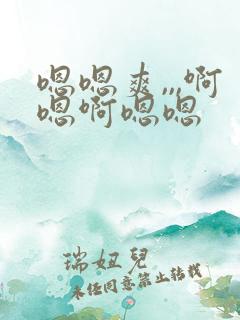 嗯嗯爽,,,啊
嗯啊嗯嗯
瑞妞兒
未经同意禁止转载